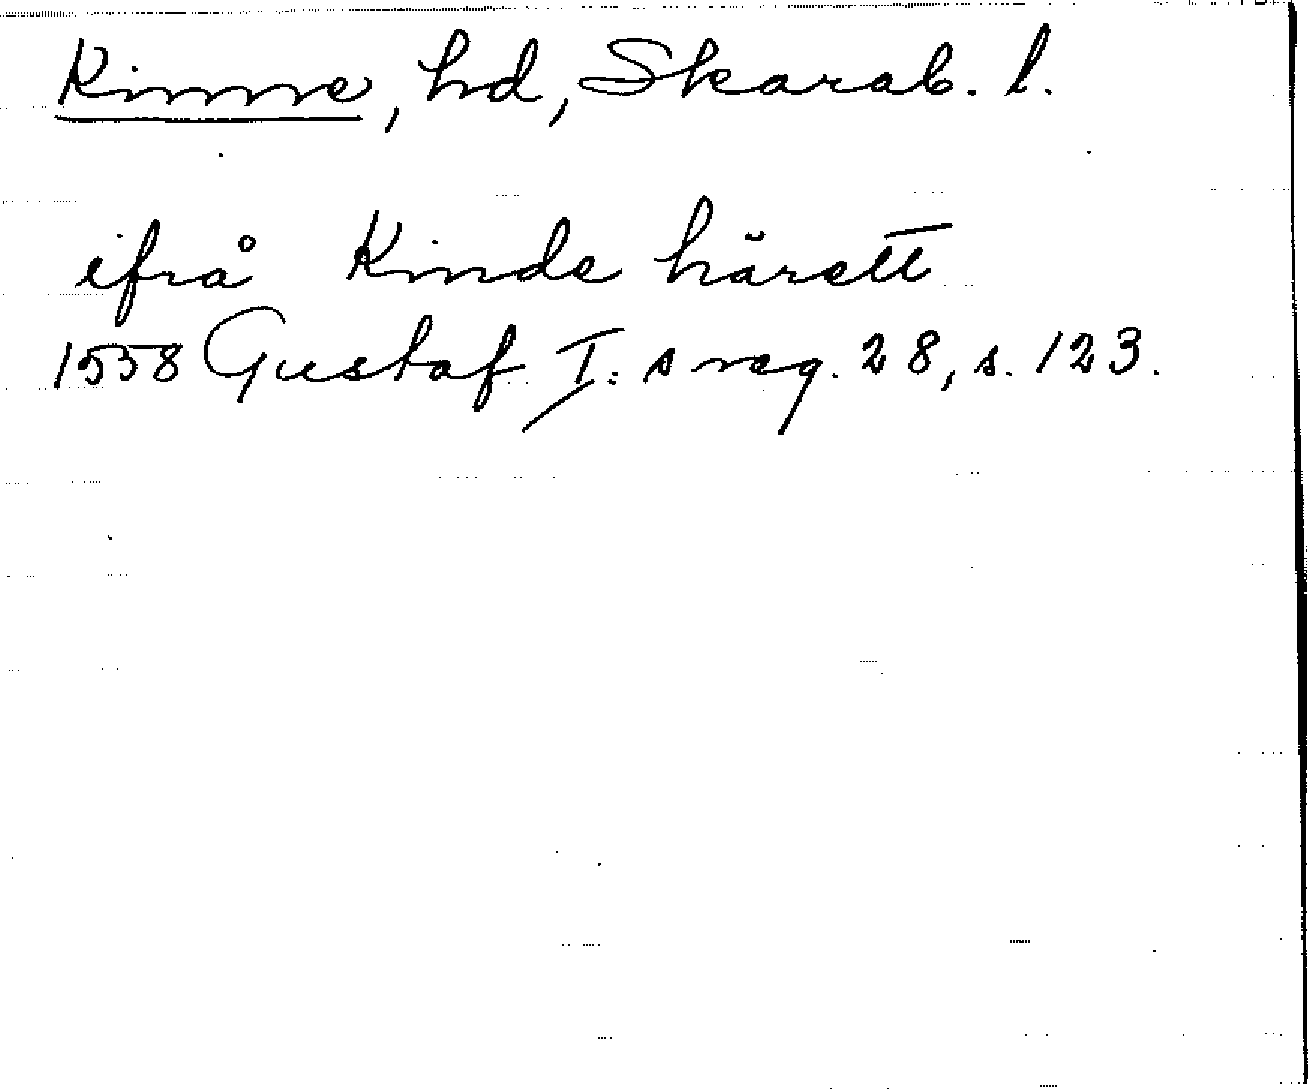 Kinne, hd, Skarab. l.
ifrå Kinde härett
1558 Gustaf I:s reg. 28, s. 123.